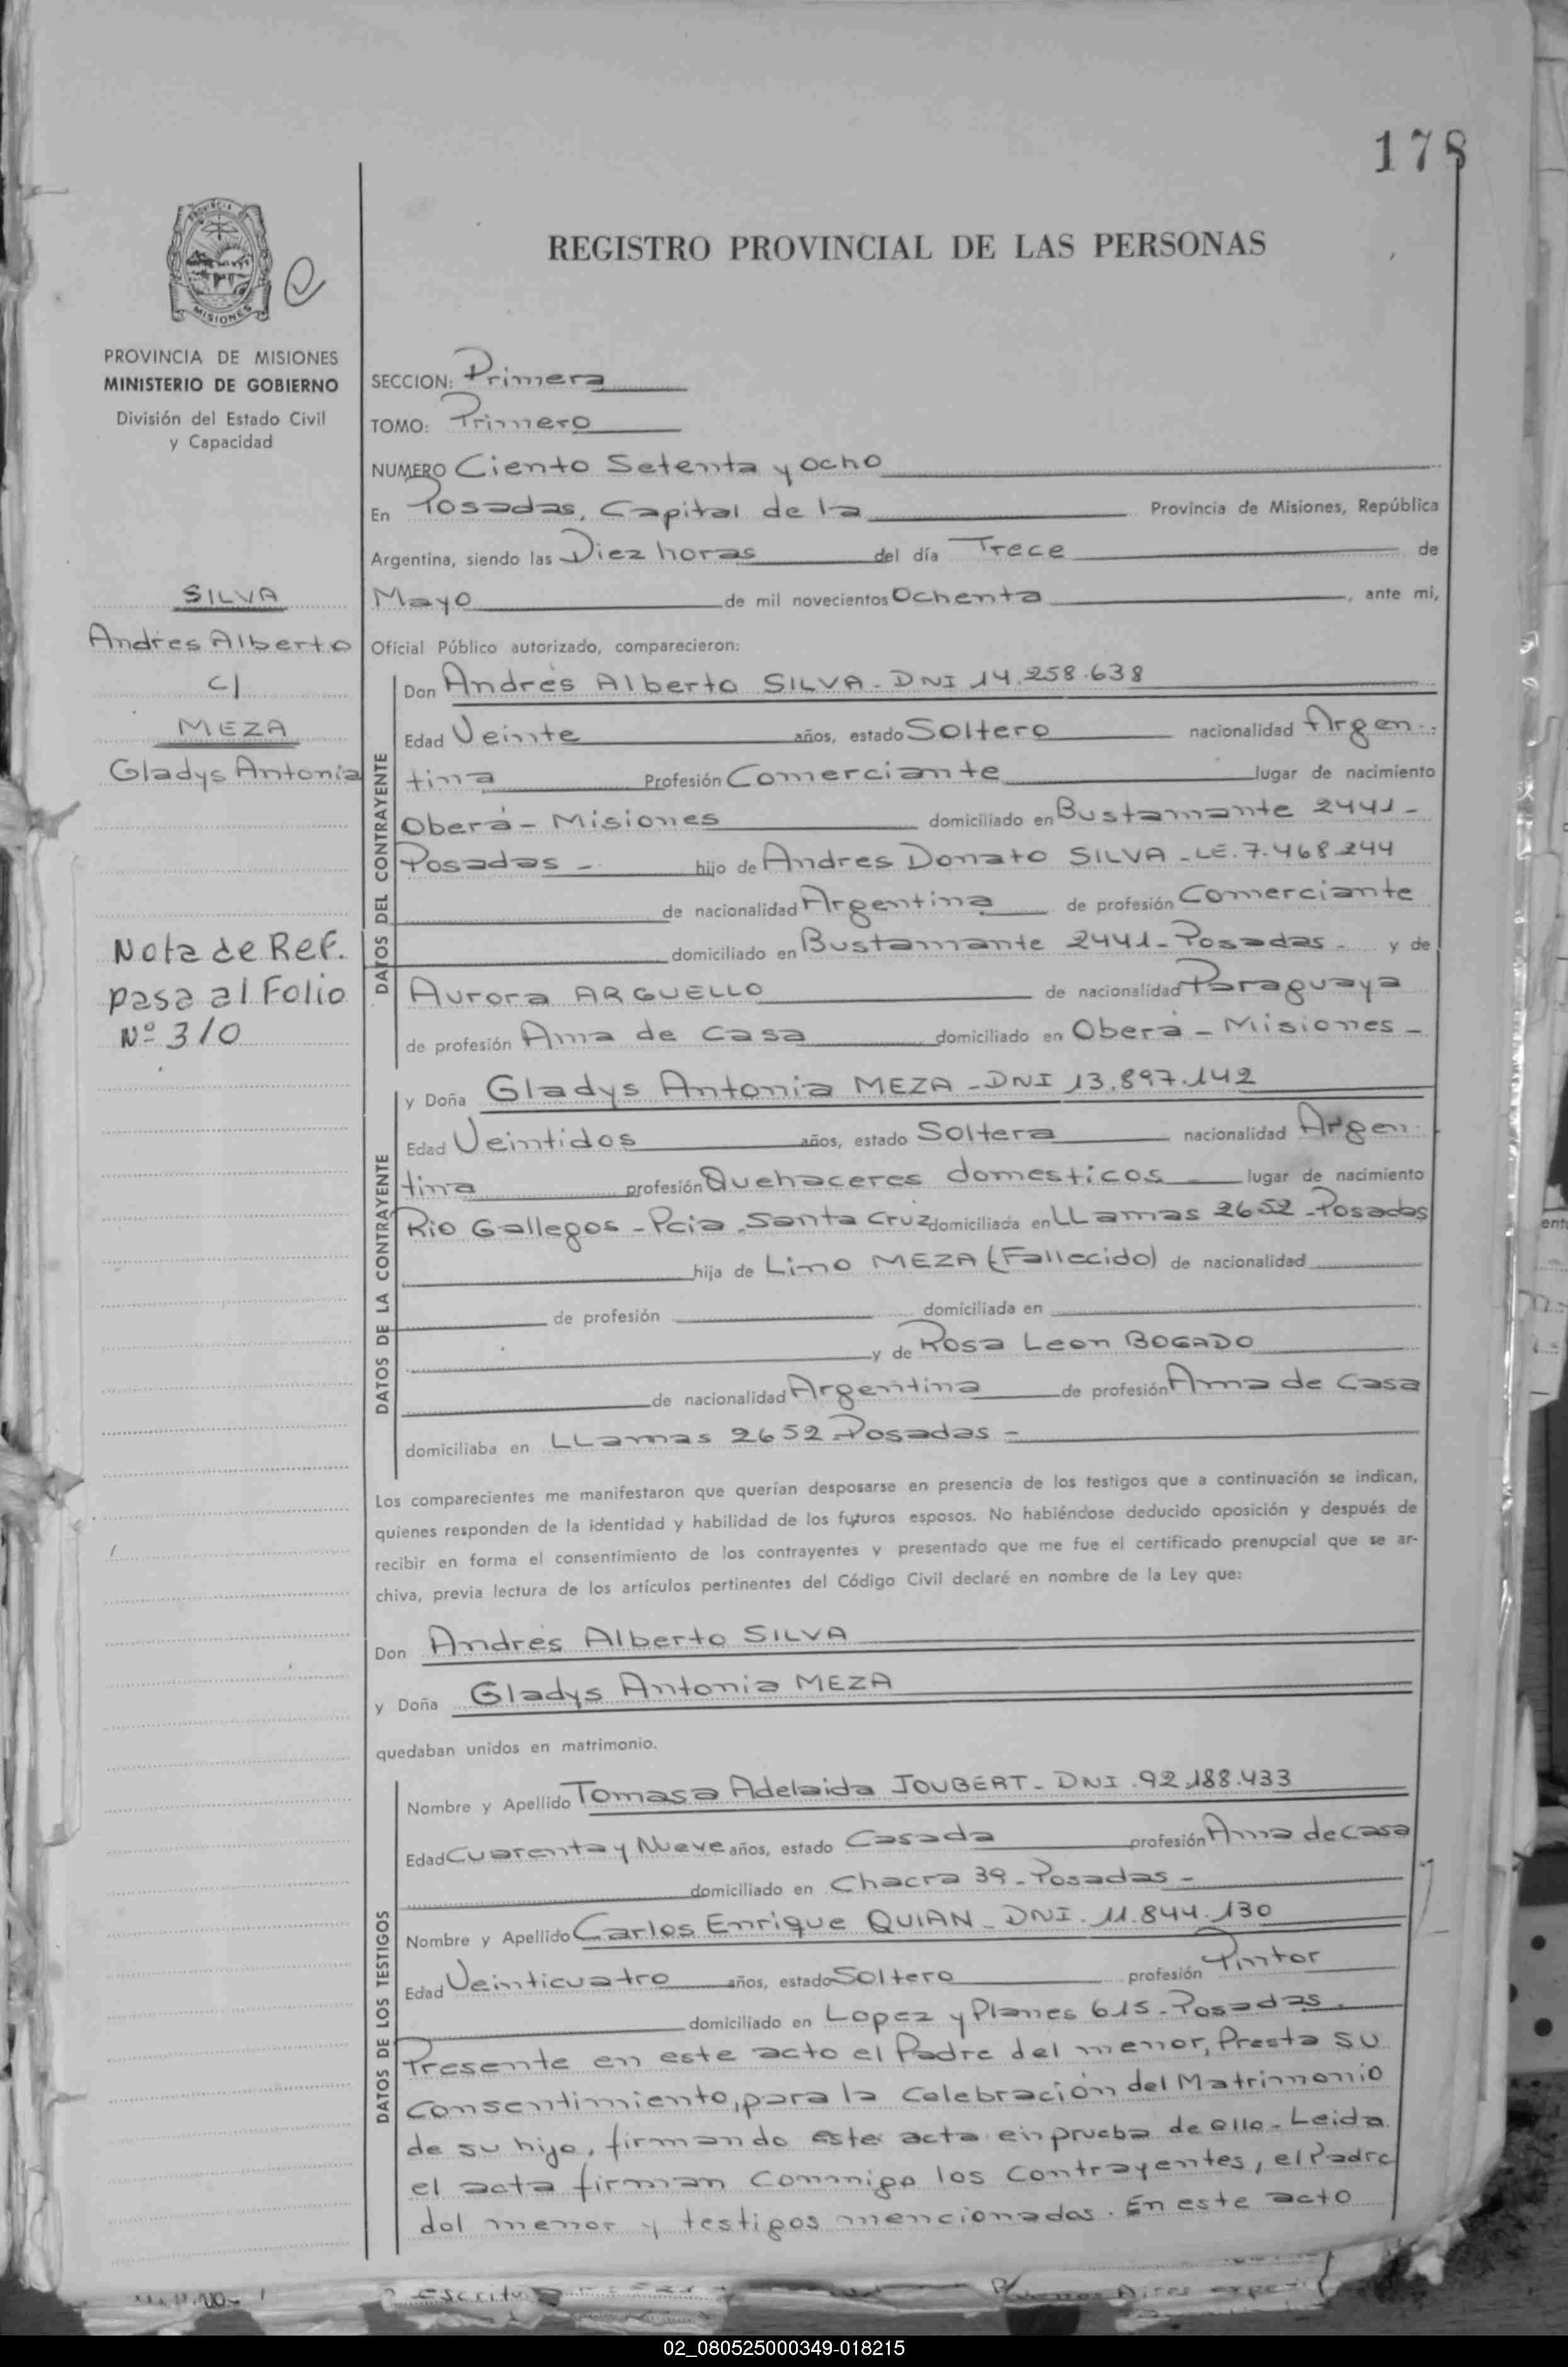 178
REGISTRO PROVINCIAL DE LAS PERSONAS
PROVINCIA DE
MISIONES
PROVINCIA DE MISIONES
MINISTERIO DE GOBIERNO
División del Estado Civil
y Capacidad
SILVA
Andres Alberto
c/
MEZA
Gladys Antonia
Nota de Ref.
pasa al Folio
Nº 310
SECCION: Primera
TOMO: Primero
NUMERO Ciento Setenta y ocho
En Posadas, Capital de la Provincia de Misiones, República
Argentina, siendo las Diez horas del día Trece de
Mayo de mil novecientos Ochenta, ante mi,
Oficial Público autorizado, comparecieron:
DATOS DEL CONTRAYENTE
Don Andrés Alberto SILVA - DNI 14.258.638
Edad Veinte años, estado Soltero nacionalidad Argen-
tina Profesión Comerciante lugar de nacimiento
Oberá - Misiones domiciliado en Bustamante 2441 -
Posadas - hijo de Andres Donato SILVA - LE. 7.468.244
de nacionalidad Argentina de profesión Comerciante
domiciliado en Bustamante 2441 - Posadas - y de
Aurora ARGUELLO de nacionalidad Paraguaya
de profesión Ama de casa domiciliado en Oberá - Misiones -
DATOS DE LA CONTRAYENTE
y Doña Gladys Antonia MEZA - DNI 13.897.142
Edad Veintidos años, estado Soltera nacionalidad Argen-
tina profesión Quehaceres domesticos lugar de nacimiento
Rio Gallegos - Pcia. Santa Cruz domiciliada en LLamas 2652 - Posadas
hija de Lino MEZA (Fallecido) de nacionalidad
de profesión domiciliada en
y de Rosa Leon BOGADO
de nacionalidad Argentina de profesión Ama de Casa
domiciliaba en LLamas 2652 - Posadas -
Los comparecientes me manifestaron que querían desposarse en presencia de los testigos que a continuación se indican,
quienes responden de la identidad y habilidad de los futuros esposos. No habiéndose deducido oposición y después de
recibir en forma el consentimiento de los contrayentes y presentado que me fue el certificado prenupcial que se ar-
chiva, previa lectura de los artículos pertinentes del Código Civil declaré en nombre de la Ley que:
Don Andrés Alberto SILVA
y Doña Gladys Antonia MEZA
quedaban unidos en matrimonio.
DATOS DE LOS TESTIGOS
Nombre y Apellido Tomasa Adelaida JOUBERT - DNI. 92.188.433
Edad Cuarenta y Nueve años, estado Casada profesión Ama de casa
domiciliado en Chacra 39 - Posadas -
Nombre y Apellido Carlos Enrique QUIAN - DNI. 11.844.130
Edad Veinticuatro años, estado Soltero profesión Pintor
domiciliado en Lopez y Planes 615 - Posadas.
Presente en este acto el Padre del menor, Presta su
consentimiento, para la celebración del Matrimonio
de su hijo, firmando este acta en prueba de ello - Leida
el acta firman conmigo los contrayentes, el Padre
del menor y testigos mencionados. En este acto
02_080525000349-018215